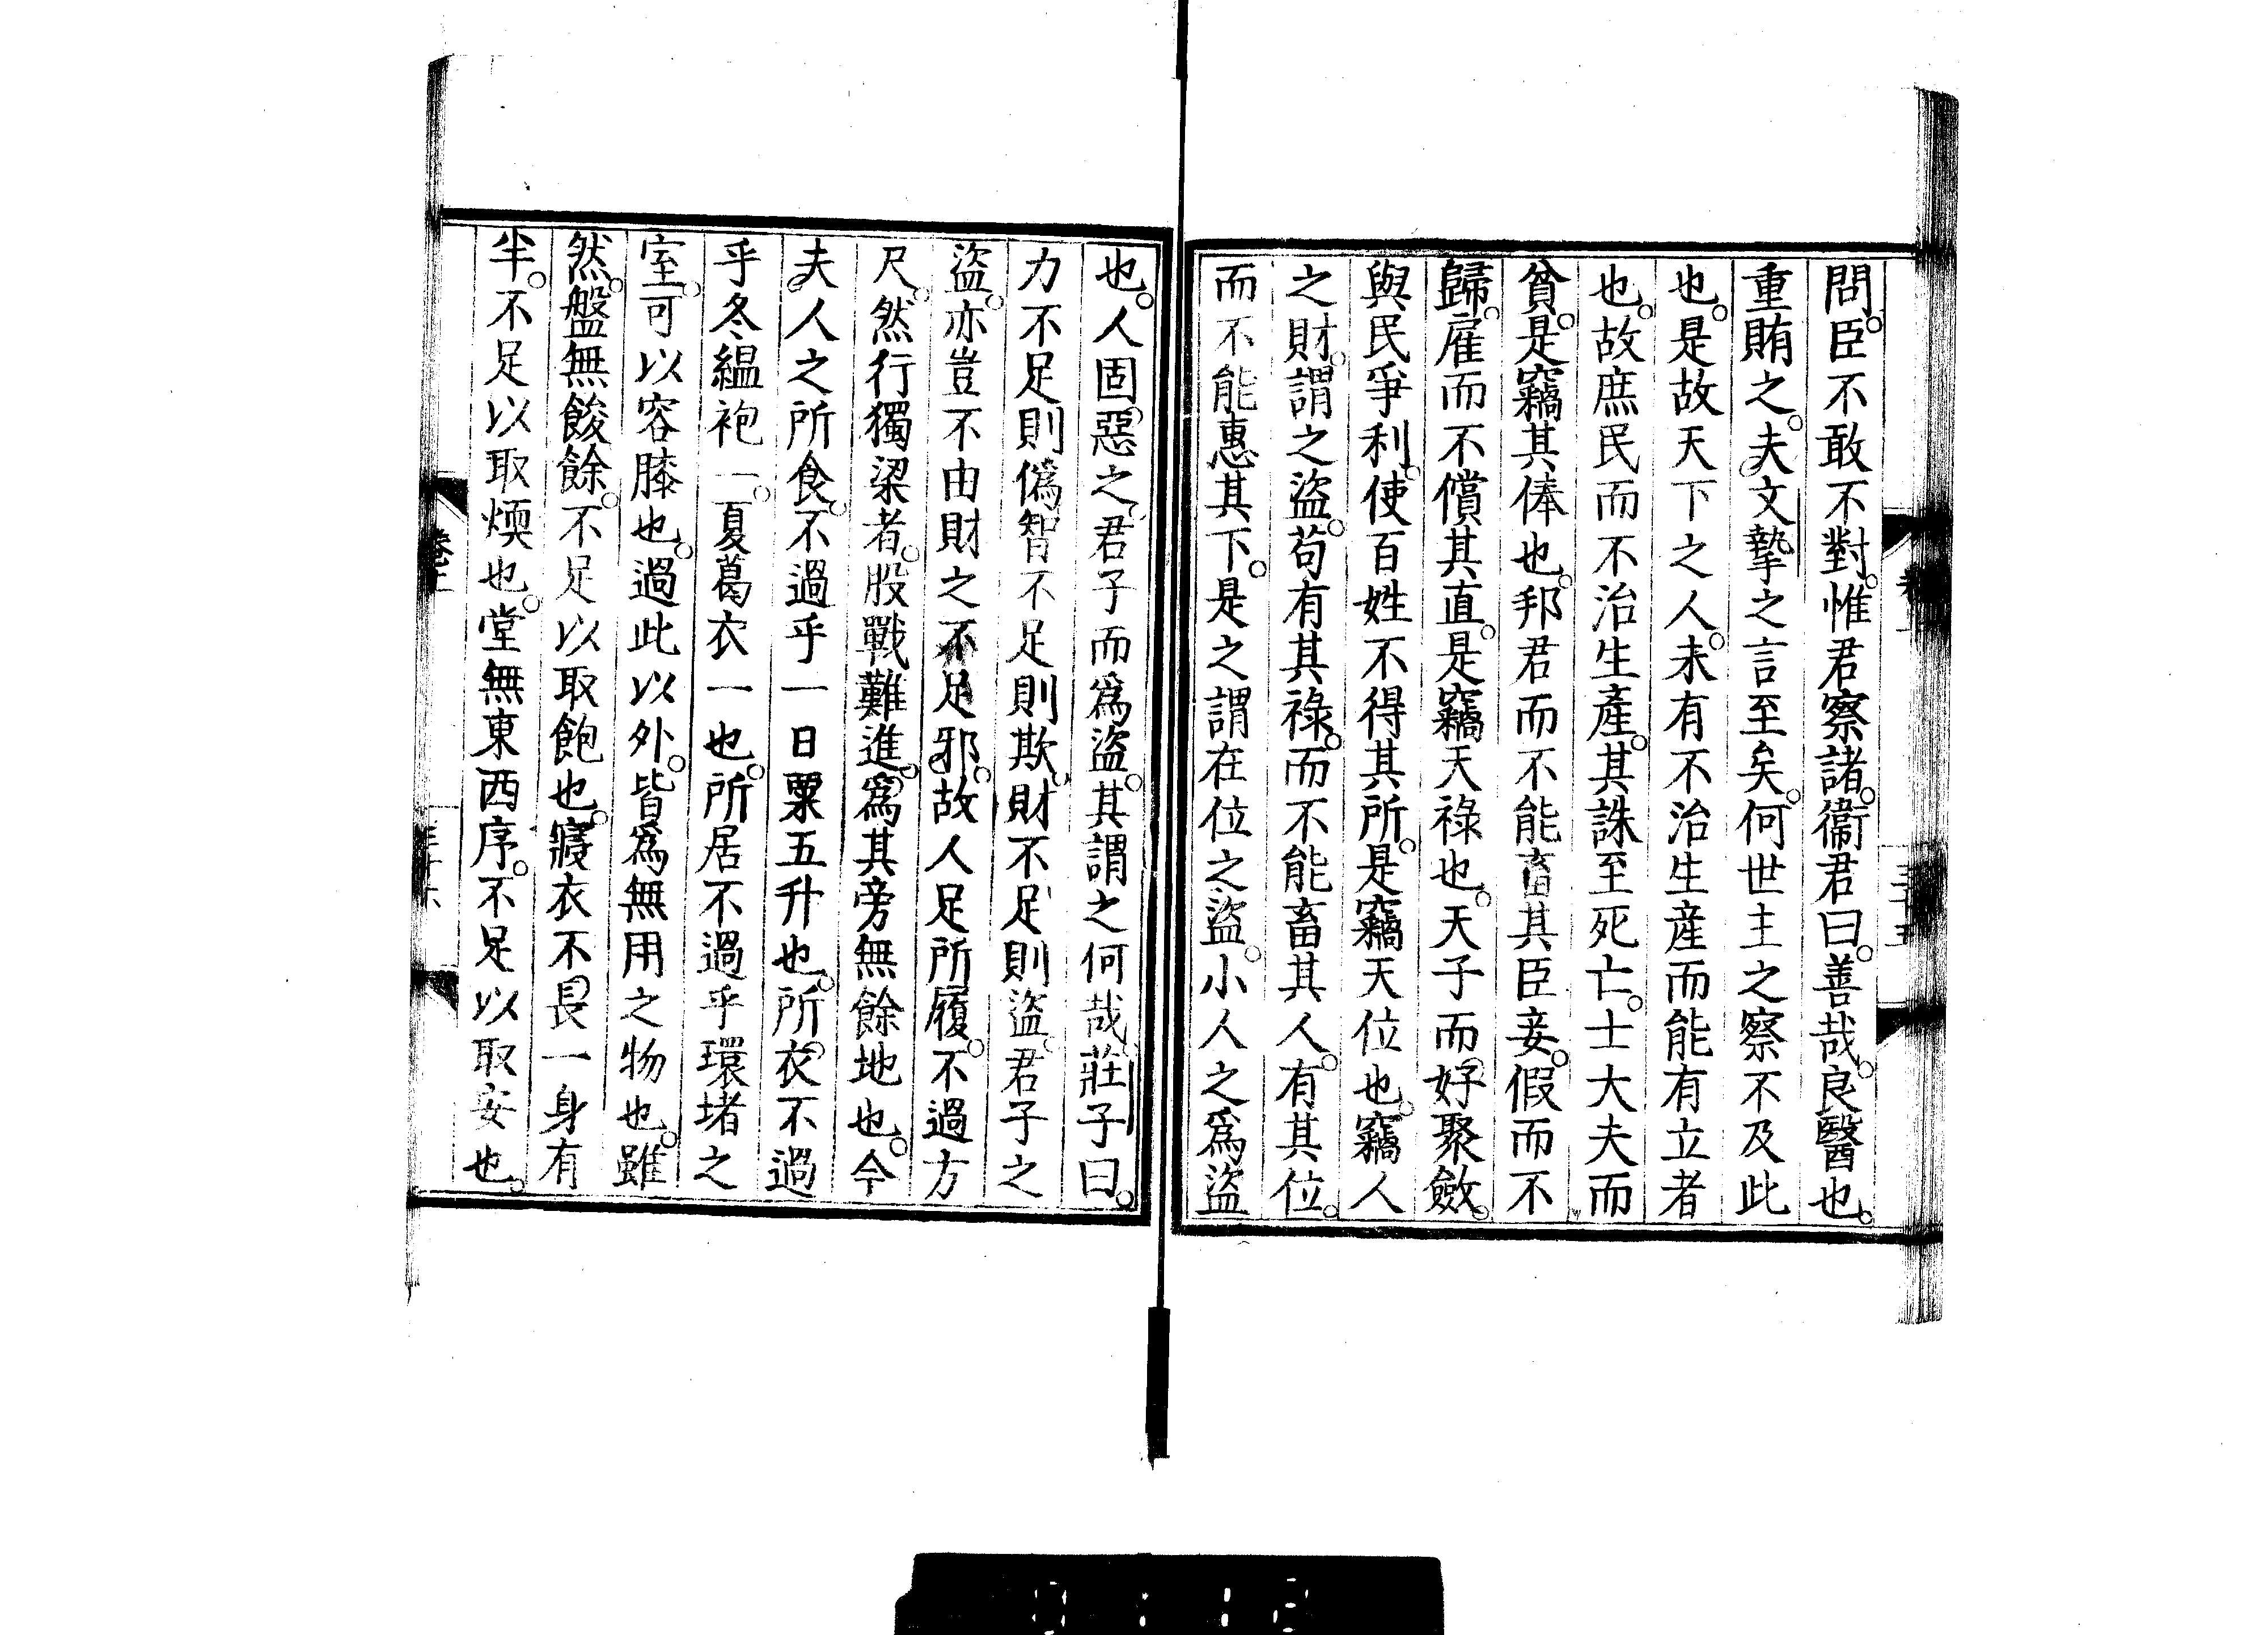 問。臣不敢不對。惟君察諸。衞君曰。善哉。良醫也。
重賄之。夫文摯之言至矣。何世主之察不及此
也。是故天下之人。未有不治生産而能有立者
也。故庶民而不治生產。其誅至死亡。士大夫而
貧。是竊其俸也。邦君而不能畜其臣妾。假而不
歸。雇而不償其直。是竊天祿也。天子而好聚斂。
與民爭利。使百姓不得其所。是竊天位也。竊人
之財。謂之盜。苟有其祿。而不能畜其人。有其位。
而不能惠其下。是之謂在位之盜。小人之爲盜
也。人固惡之。君子而爲盜。其謂之何哉。莊子曰。
力不足則僞。智不足則欺。財不足則盜。君子之
盜。亦豈不由財之不足邪。故人足所履。不過方
尺。然行獨梁者。股戰難進。爲其旁無餘地也。今
夫人之所食。不過乎一日粟五升也。所衣不過
乎冬縕袍一。夏葛衣一也。所居不過乎環堵之
室。可以容膝也。過此以外。皆爲無用之物也。雖
然。盤無餕餘。不足以取飽也。寢衣不長一身有
半。不足以取煗也。堂無東西序。不足以取安也。
卷上
三十六